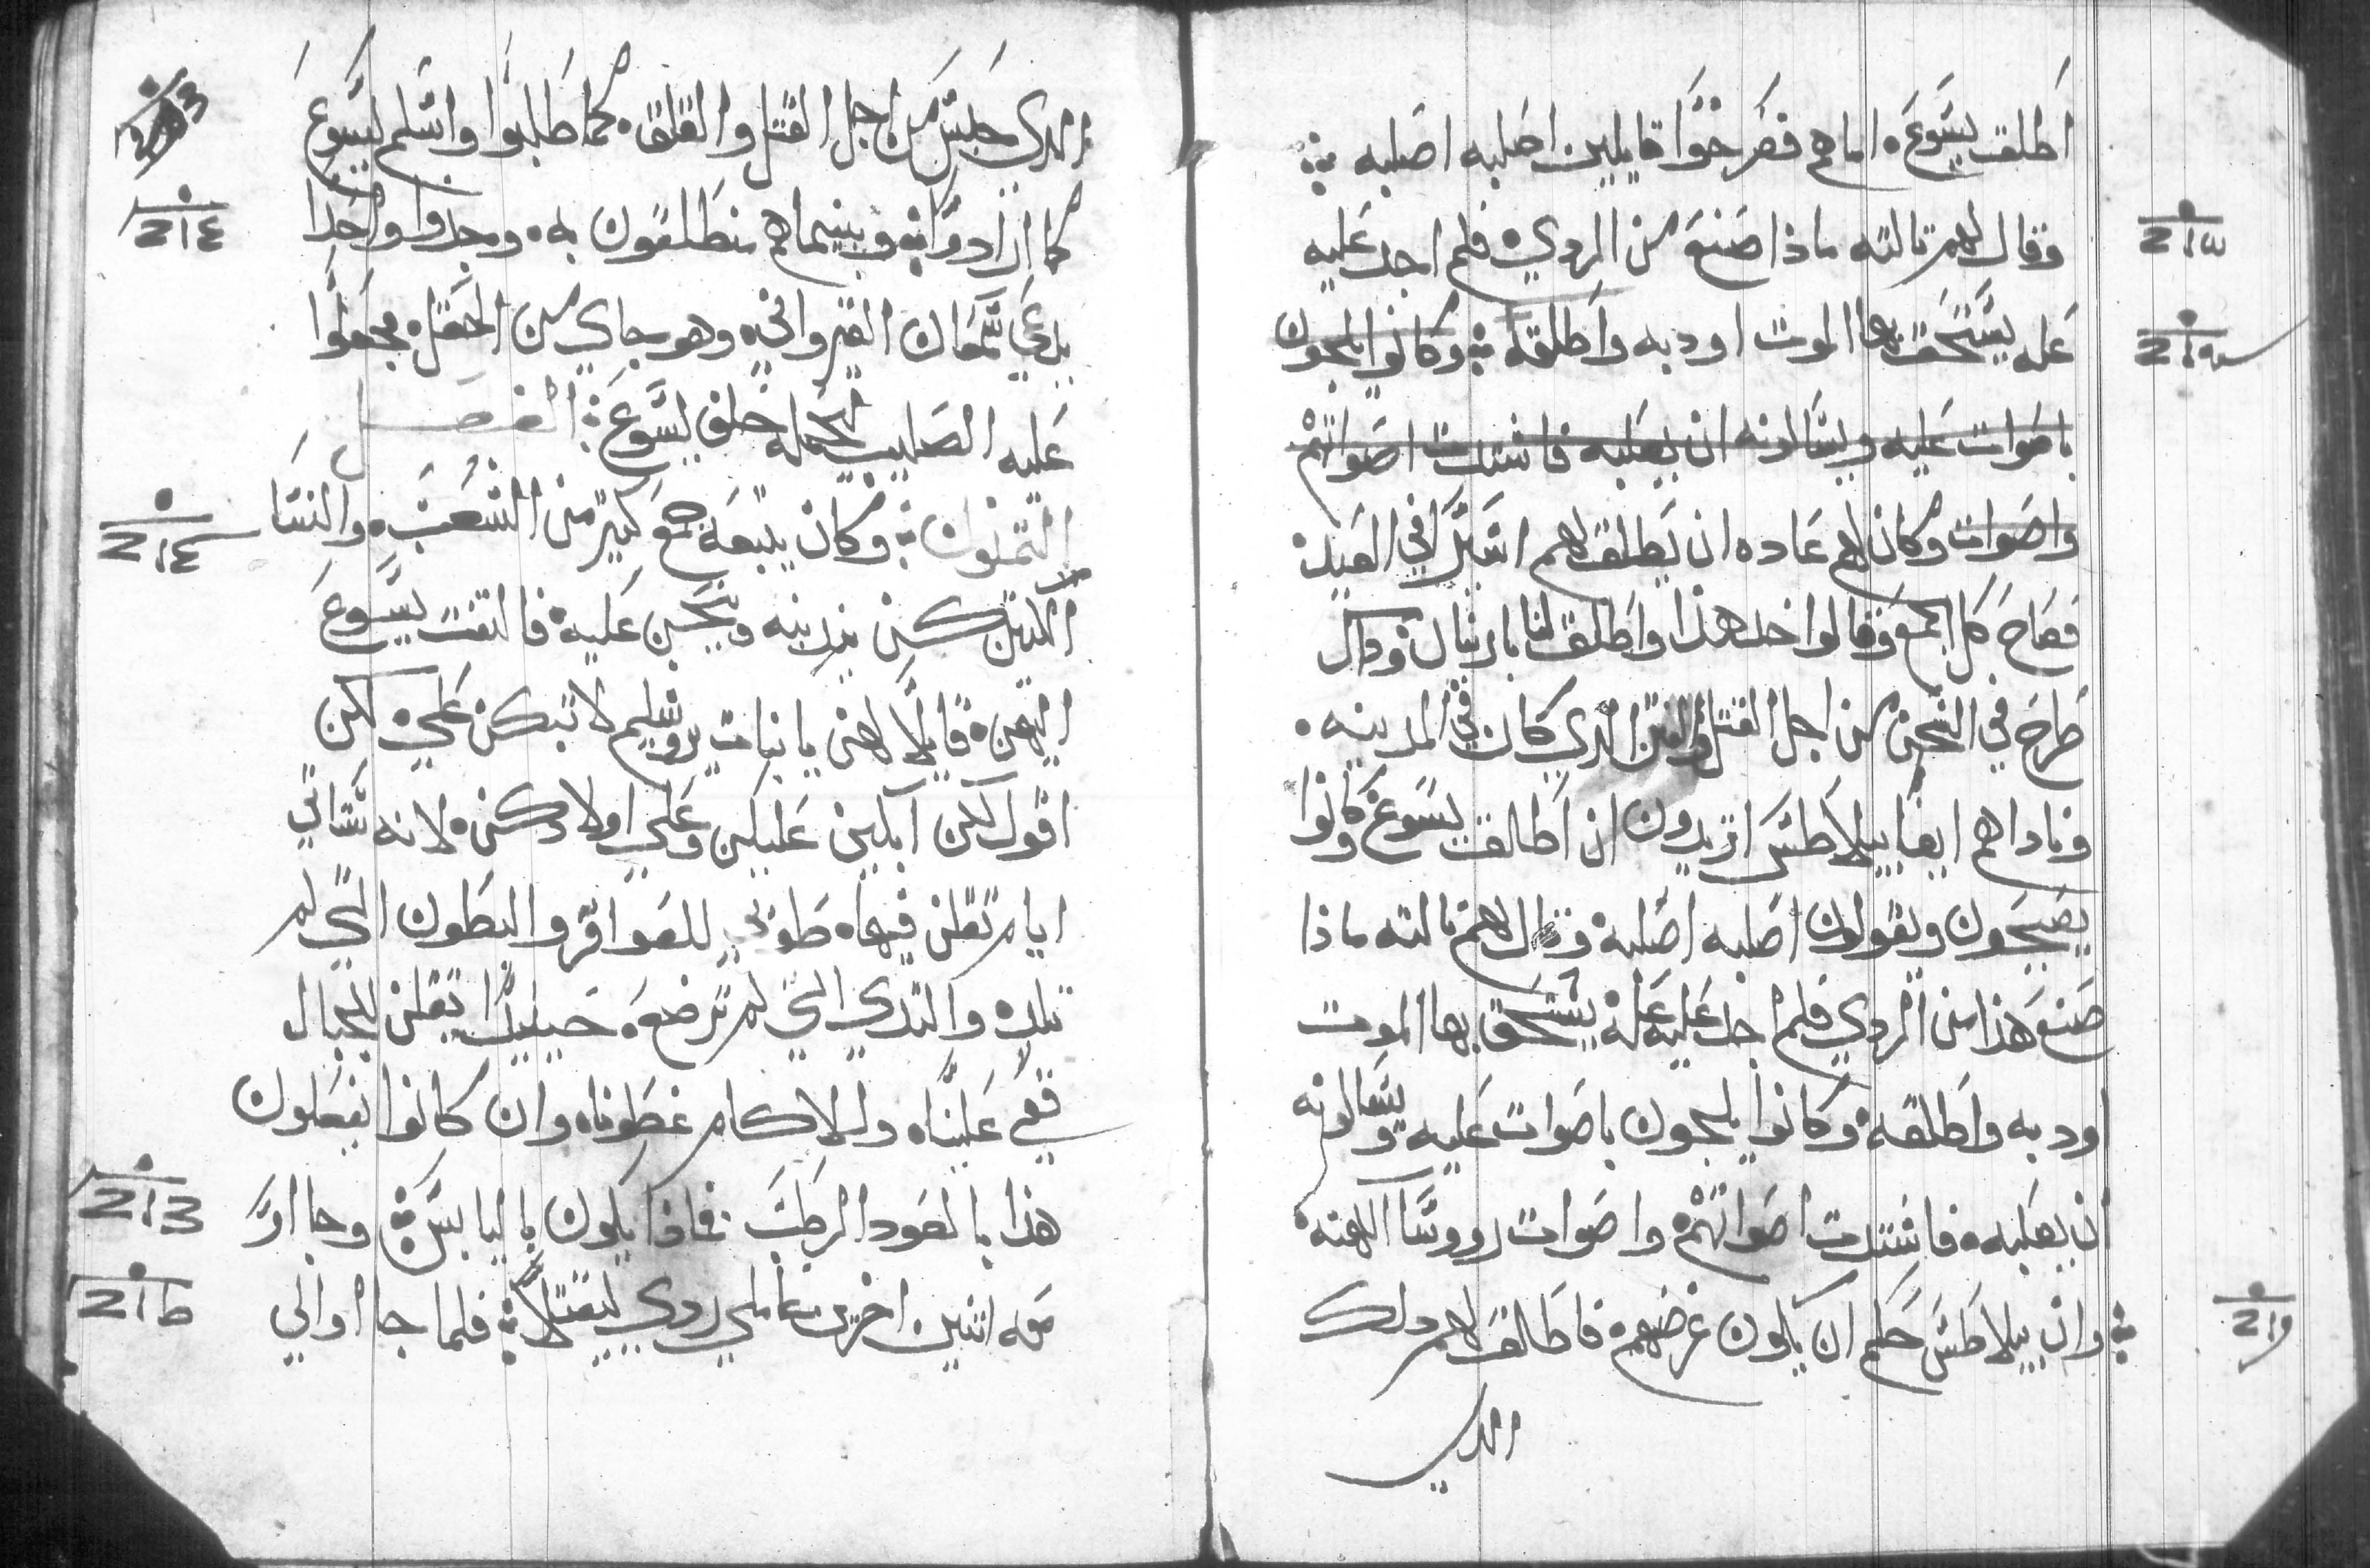 اطلق يسوع. اما هم فصرخوا قايلين اصلبه اصلبه
وقال لهم تالته ماذا صنع من الردي. فلم اجد عليه
عله يستحق بها الموت اودبه واطلقه وكانوا يلجون
باصوات عليه ويسالونه ان يصلبه فاشتدت اصواتهم
واصوات وكان لهم عاده ان يطلق لهم اسير في العيد
فصاح كل الجمع وقالوا خد هذا واطلق لنا بارنبان وداك
طرح في السجن من اجل القتل والفتن الدي كان في المدينه.
وناداهم ايضا بيلاطس اتريدون ان اطلق يسوع وكانوا
يصيحون ويقولون اصلبه اصلبه وقال لهم تالته ماذا
صنع هذا من الردي فلم اجد عليه عله يستحق بها الموت
اودبه واطلقه. وكانوا يلجون باصوات عليه ويسالونه
ان يصلبه. فاشتدت اصواتهم واصوات رووسا الكهنه
وان بيلاطس حكم ان يكون غرضهم. فاطلق لهم دلك
الدي
الدي حبس من اجل القتل والقلق. كما طلبوا واسلم يسوع
كما ارادوا وبينما هم منطلقون به. وجدوا واحدا
يدعي سمعان القيرواني. وهو جاي من الحقل. فجعلوا
عليه الصليب ليحمله خلف يسوع الفصل
التمنون وكان يتبعه جمع كتير من الشعب. والنسا
اللاتي كن يندبنه وينحن عليه. فالتفت يسوع
اليهن. قايلا لهن يا بنات يروشليم لا تبكن علي. لكن
اقول لكن ابكين عليكن وعلي اولادكن. لانه ستاتي
ايام تقلن فيها. طوبي للعواقر والبطون التي لم
تلد. والتدي التي لم ترضع. حينيدا تقلن للجبال
قعي علينا. وللاكام غطونا. وان كانوا يفعلون
هذا بالعود الرطب. فماذا يكون باليابس وجااوا
معه اتنين اخرين عاملي ردي ليقتلا فلما جااوا الي